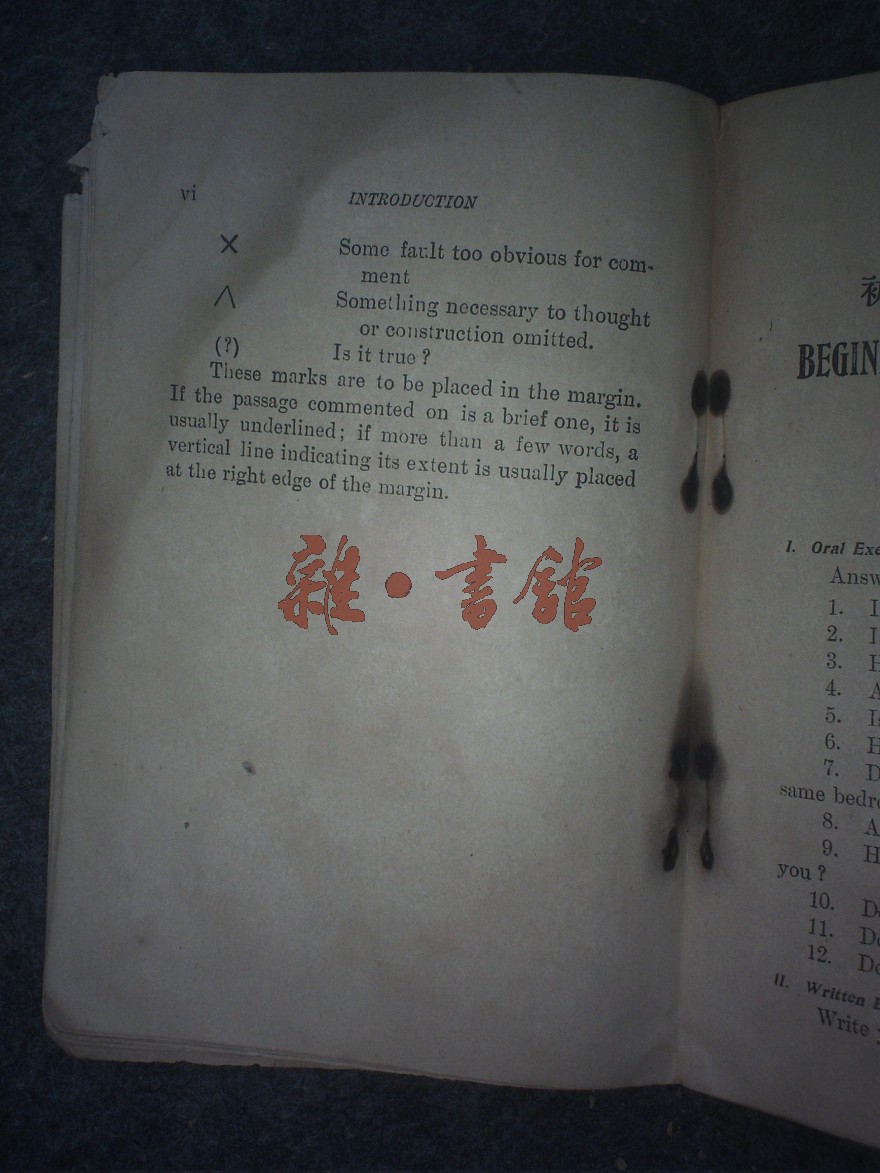 vi INTRODUCTION
× Some fault too obvious for com-
ment
∧ Something necessary to thought
or construction omitted.
(?) Is it true ?
These marks are to be placed in the margin.
If the passage commented on is a brief one, it is
usually underlined; if more than a few words, a
vertical line indicating its extent is usually placed
at the right edge of the margin.
雜·書館
BEGIN
I. Oral Exe
Answ
1. I
2. I
3. H
4. A
5. Is
6. H
7. D
same bedro
8. A
9. H
you ?
10. Do
11. Do
12. Do
II. Written E
Write y